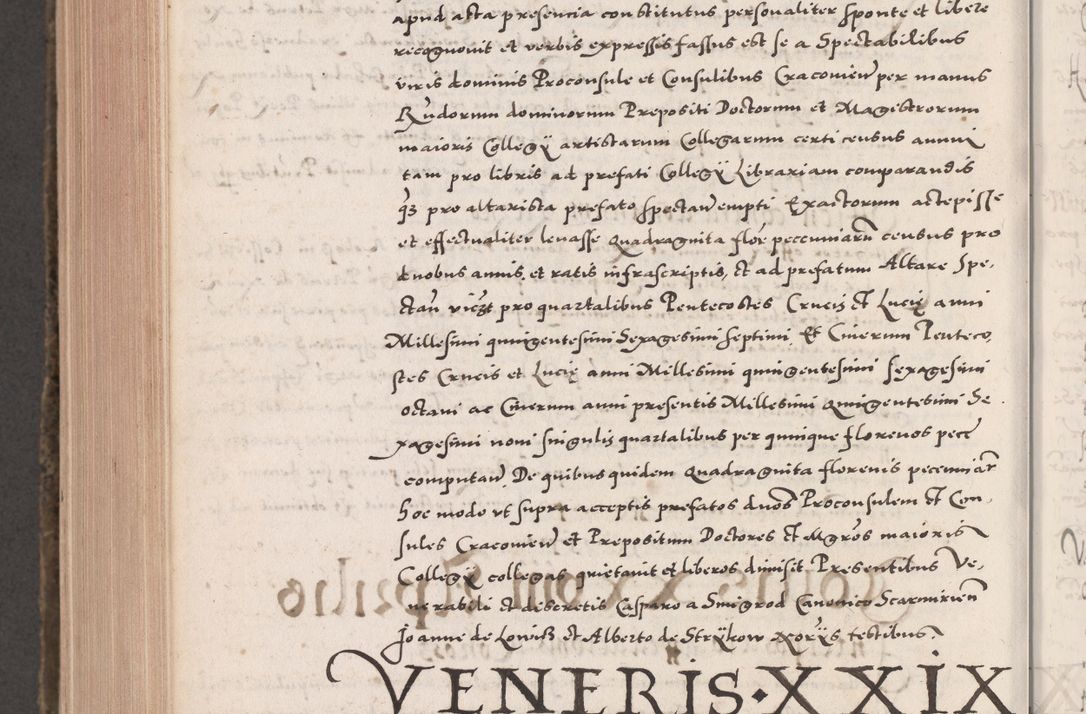 apud acta presencia constitutus personaliter sponte et libere
recognovit et verbis expressis fassus est se a Spectabilibus
viris dominis Proconsule et Consulibus Cracovien per manus
Rndorum dominorum Prepositi Doctorum et Magistrorum
maioris Collegÿ artistarum Collegarum certi census annui
tam pro libris ad prefati Collegÿ Librariam comparandis
qz pro altarista prefato spectan empti Exactorum accepisse
et effectualiter levasse Quadraginta flore peccuniarũ census pro
duobus annis, et ratis infrascriptis, et ad prefatum Altare Spe,
ctan viczt pro quartalibus Pentecostes Crucis et Lucię anni
Millesimi quingentesimi Sexagesimi septimi, Et Cinerum Penteco,
stes Crucis et Lucię anni Millesimi quingentesimi sexagesimi
octavi ac Cinerum anni presentis Millesimi Quingentesimi Se,
xagesimi noni singulis quartalibus per quinque florenos pecc
computan De quibus quidem Quadraginta florenis pecuniar
hoc modo ut supra acceptis prefatos dnos Proconsulem et Con,
sules Cracovien et Prepositum Doctores et Mgros maioris
Collegÿ collegas quietavit et liberos dimisit Presentibus Ve,
nerabili et discretis Casparo a Smigrod Canonico Scarmirien
Joanne de Lowiß et Alberto de Strÿkow Notorÿs testibus.
VENERIS · XXIX